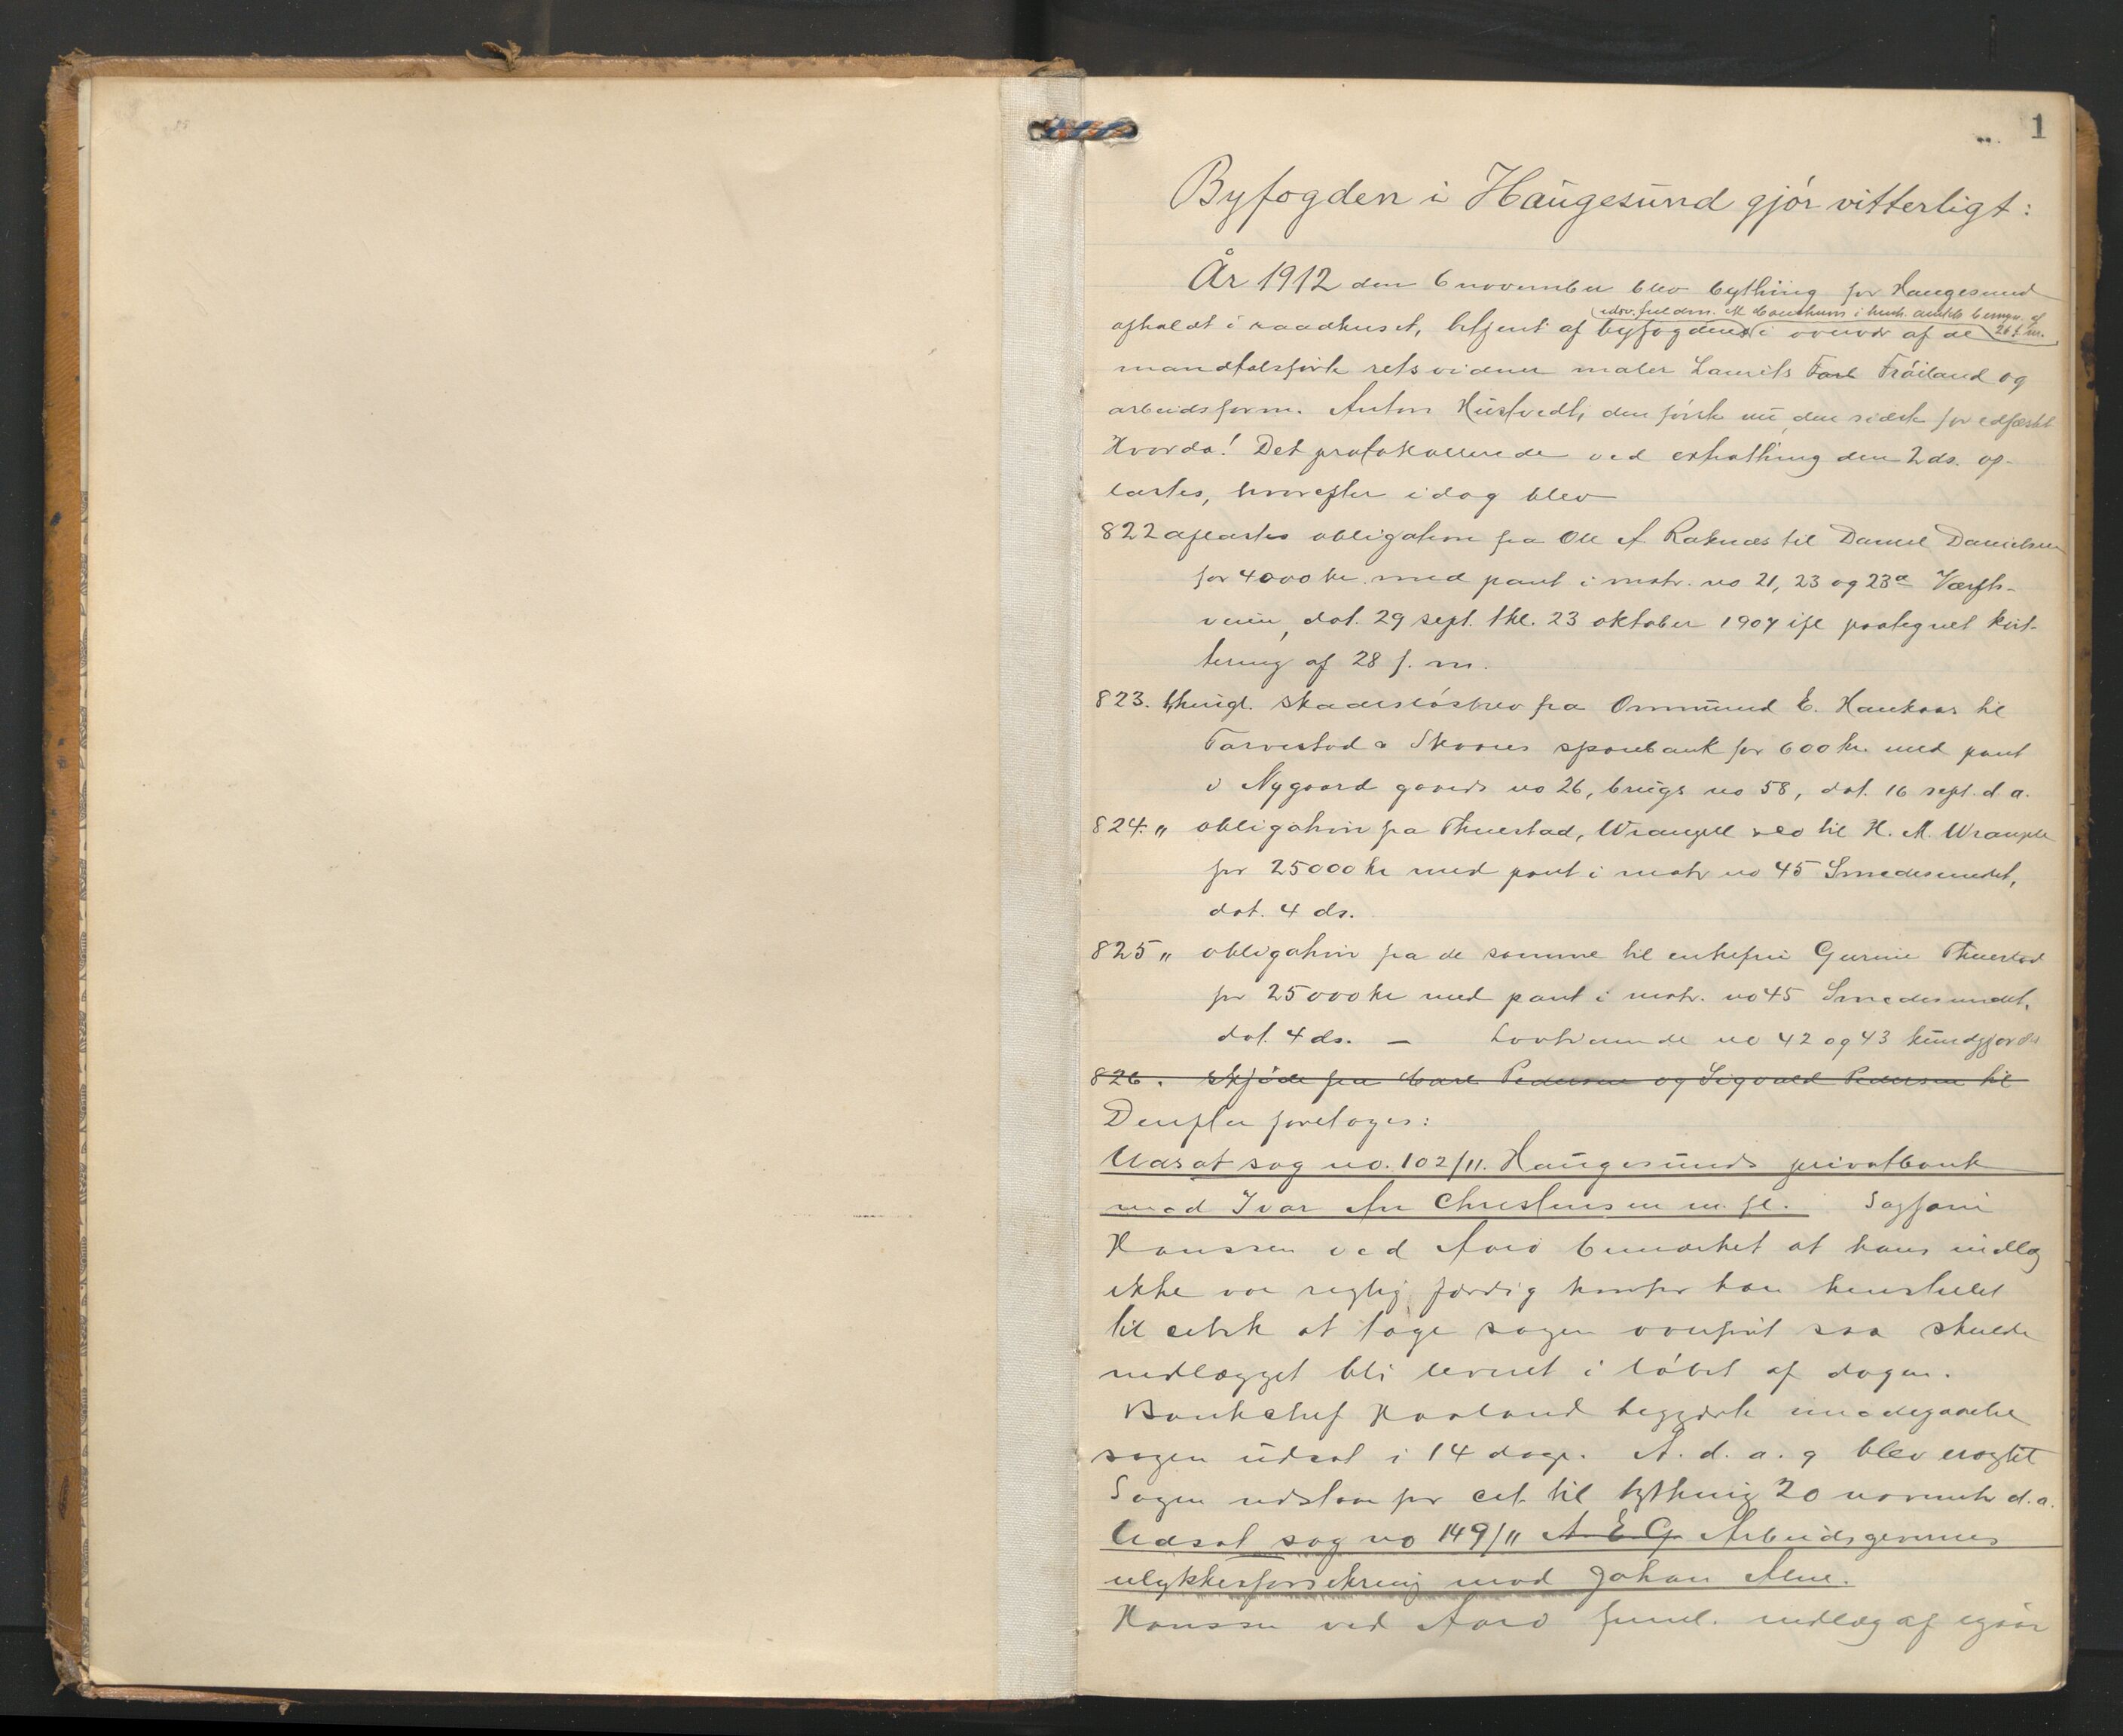 1
Byfogden i Haugesund gjør vitterligt:
År 1912 den 6 november blev bything for Haugesund
afholdt i raadhuset, betjent af byfogden i overvær af de
26 f. m.
mandtalsførte retsvidner maler Laurits Frøiland og
arbeidsform. Anton Hustvedt, den første nu, den sidste før edfæstet
Hvorda! Det protokollerede ved extrathing den 2 ds. op-
læstes, hvorefter idag blev
822 aflæstes obligation fra Ole A Raknes til Daniel Danielsen
for 4000 kr. med pant i matr. no 21, 23 og 23a Værfts-
veien, dat. 29 sept. thl. 23 oktober 1907 ifl paategnet kvit-
tering af 28 f. m.
823. thingl. skadesløsbrev fra Ommund E. Haukaas til
Torvestad & Skaares sparebank for 600 kr. med pant
i Nygaard gaards no 26, brugs no 58, dat. 16 sept. d. a.
824. " obligation fra Thuestad, Wrangell & Co til H. M. Wrangell
for 25000 kr med pant i matr no 45 Smedesundet,
dat. 4 ds.
825 " obligation fra de samme til enkefru Gurine Thuestad
for 25000 kr med pant i matr. no 45 Smedesundet,
dat. 4 ds. — Lovtidende no 42 og 43 kundgjordes
826. Skjøde fra Carl Pedersen og Sigvald Pedersen til
Derefter foretages:
Udsat sag no. 102/11. Haugesunds privatbank
mod Ivar An Christensen m. fl. Sagfører
Hanssen ved Aarø bemærket at hans indlæg
ikke var rigtig færdig hvorfor han henstillet
til retten at tage sagen overfrit saa skulde
indlægget bli leveret i løbet af dagen.
Bankchef Haaland begjærte imødegaaelse
sagen udsat i 14 dage. A. d. a. g blev eragtet
Sagen udstaar for cit. til bything 20 novembr d. a.
Udsat sag no 149/11 A E G Arbeidsgivernes
ulykkesforsikring mod Johan Alne.
Hanssen ved Aarø freml. indlæg af igaar